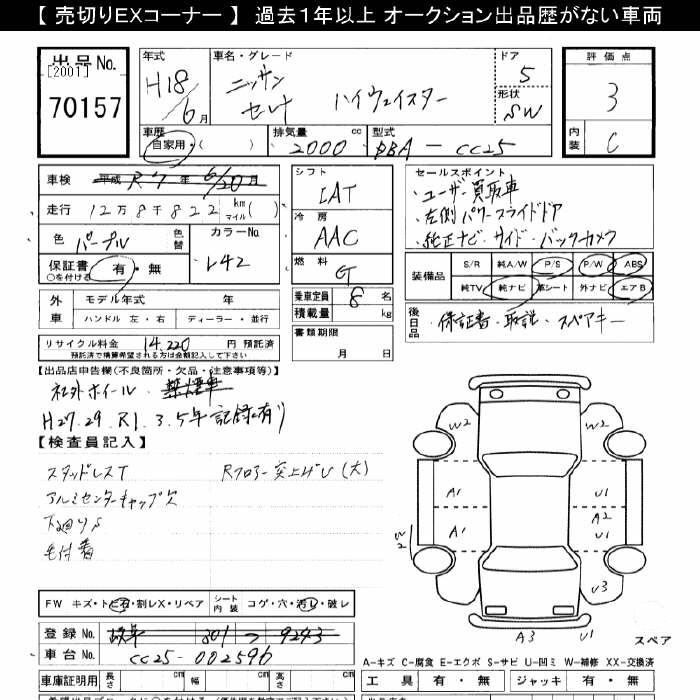 【 売切りEXコーナー 】 過去1年以上 オークション出品歴がない車両
出品No.
[2001]
70157
年式
H18/6月
車名・グレード
ニッサン
セレナ ハイウェイスター
ドア
5
形状
SW
評価点
3
内装
C
車歴
自家用・( )
排気量 cc
2000
型式
DBA - CC25
車検 平成 R7年 6/20月
走行 12万8千822 km マイル( )
色 パープル 色替
カラーNo.
L42
保証書 有・無
○を付ける
シフト
IAT
冷房
AAC
燃料
G
乗車定員 8 名
積載量 kg
書類期限
月 日
セールスポイント
・ユーザー買取車
・左側パワースライドドア
・純正ナビ・サイド・バックカメラ
装備品 S/R 純A/W P/S P/W ABS
純TV 純ナビ 革シート 外ナビ エアB
後日品 ・保証書・取説・スペアキー
外車 モデル年式 年
ハンドル 左・右 ディーラー・並行
リサイクル料金 14,220 円 預託済
預託済で積算希望される方は金額記入して下さい
【出品店申告欄(不良箇所・欠品・注意事項等)】
社外ホイール・禁煙車
H27.29.R1.3.5年記録有り
【検査員記入】
スタッドレスT Rフロアー突上げU(大)
アルミセンターキャップ欠
下廻りS
毛付着
W2 W2
A1 U1
A2
A1 U1
W2
U3
A3 U1
スペア
FW キズ・トビ石・割レX・リペア シート内装 コゲ・穴・汚レ・破レ
登録No. 301 つ 9243
車台No. CC25-002596
A-キズ C-腐食 E-エクボ S-サビ U-凹ミ W-補修 XX-交換済
車庫証明用 長さ cm 幅 cm 高さ cm
工具 有・無 ジャッキ 有・無